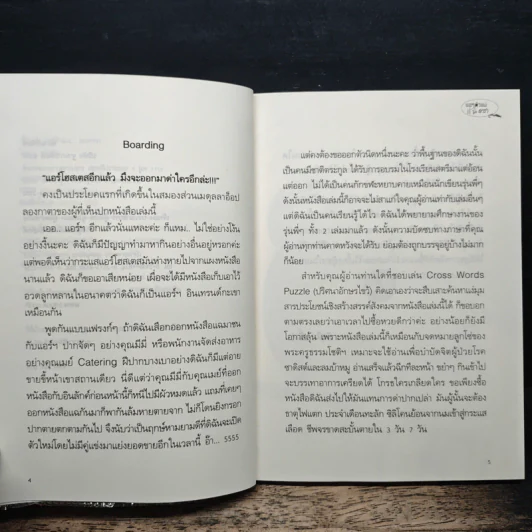 Boarding
"แอร์โฮสเตสอีกแล้ว มึงจะออกมาด่าใครอีกล่ะ!!!"
คงเป็นประโยคแรกที่เกิดขึ้นในสมองส่วนเมดุลลาอ็อบ
ลองกาตาของผู้ที่เห็นปกหนังสือเล่มนี้
เออ.. แอร์ฯ อีกแล้วนั่นแหละค่ะ ก็แหม.. ไม่ใช่อย่างโน้น
อย่างงี้นะคะ ดิฉันก็มีปัญญาทำมาหากินอย่างอื่นอยู่หรอกค่ะ
แต่พอดีเห็นว่ากระแสแอร์โฮสเตสมันห่างหายไปจากแผงหนังสือ
นานแล้ว ดิฉันก็ขอเอาเสียหน่อย เผื่อจะได้มีหนังสือเก็บเอาไว้
อวดลูกหลานในอนาคตว่าดิฉันก็เป็นแอร์ฯ อินเทรนด์กะเขา
เหมือนกัน
พูดกันแบบแฟรงก์ๆ ถ้าดิฉันเสือกออกหนังสือแฉมาชน
กับแอร์ฯ ปากจัดๆ อย่างคุณมีมี่ หรือพนักงานจัดส่งอาหาร
อย่างคุณเมย์ Catering ฝีปากบางเบาอย่างดิฉันก็มีแต่อาย
ขายขี้หน้าเขาสถานเดียว นี่ดีแต่ว่าคุณมีมี่กับคุณเมย์ที่ออก
หนังสือกับอินลักต์ก่อนหน้านี้ก็หนีไปมีผัวหมดแล้ว แถมที่เคยๆ
ออกหนังสือแฉกันมาก็พากันล้มหายตายจาก ไม่ก็โดนยิงกรอก
ปากตายตกตามกันไป จึงนับว่าเป็นฤกษ์งามยามดีที่ดิฉันจะเปิด
ตัวใหม่โดยไม่มีคู่แข่งมาแย่งยอดขายอีกในเวลานี้ อ๊า... 5555
4
แต่คงต้องขอออกตัวนิดหนึ่งนะคะ ว่าพื้นฐานของดิฉันนั้น
เป็นคนมีชาติตระกูล ได้รับการอบรมในโรงเรียนสตรีมาแต่อ้อน
แต่ออก ไม่ได้เป็นคนกักขฬะหยาบคายเหมือนนักเขียนรุ่นพี่ๆ
ดังนั้นหนังสือเล่มนี้ก็อาจจะไม่สาแก่ใจคุณผู้อ่านเท่ากับเล่มอื่นๆ
แต่ดิฉันเป็นคนเรียนรู้ได้ไว ดิฉันได้พยายามศึกษางานของ
รุ่นพี่ๆ ทั้ง 2 เล่มมาแล้ว ดังนั้นความบัดซบทางภาษาที่คุณ
ผู้อ่านทุกท่านคาดหวังจะได้รับ ย่อมต้องถูกบรรจุอยู่บ้างไม่มาก
ก็น้อย
สำหรับคุณผู้อ่านท่านใดที่ชอบเล่น Cross Words
Puzzle (ปริศนาอักษรไขว้) คิดเอาเองว่าจะสืบเสาะค้นหาแม้มุม
สารประโยชน์เชิงสร้างสรรค์สังคมจากหนังสือเล่มนี้ได้ ก็ขอบอก
ตามตรงเลยว่าเอาเวลาไปซื้อหวยดีกว่าค่ะ อย่างน้อยก็ยังมี
โอกาสลุ้น เพราะหนังสือเล่มนี้ก็เหมือนกับจดหมายลูกโซ่ของ
พระครูธรรมโชติฯ เหมาะจะใช้อ่านเพื่อบำบัดจิตผู้ป่วยโรค
ซาดิสต์และสมบ้าหมู อ่านเสร็จแล้วฉีกทีละหน้า ขยำๆ กินเข้าไป
จะบรรเทาอาการเครียดได้ ใครขโมยเกลียดใคร ขอเพียงซื้อ
หนังสือดิฉันส่งไปให้มันแทนการด่าปากเปล่า มันผู้นั้นจะต้อง
ธาตุไฟแตก ประจำเดือนทะลัก ซิลิโคนย้อนจากนมเข้าสู่กระแส
เลือด ชีพจรขาดสะบั้นตายใน 3 วัน 7 วัน
5